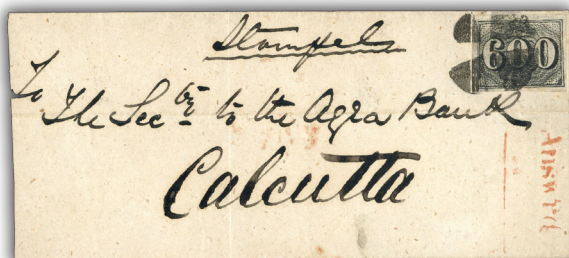 Stamped
600
To
The Secty to the Agra Bank
Calcutta